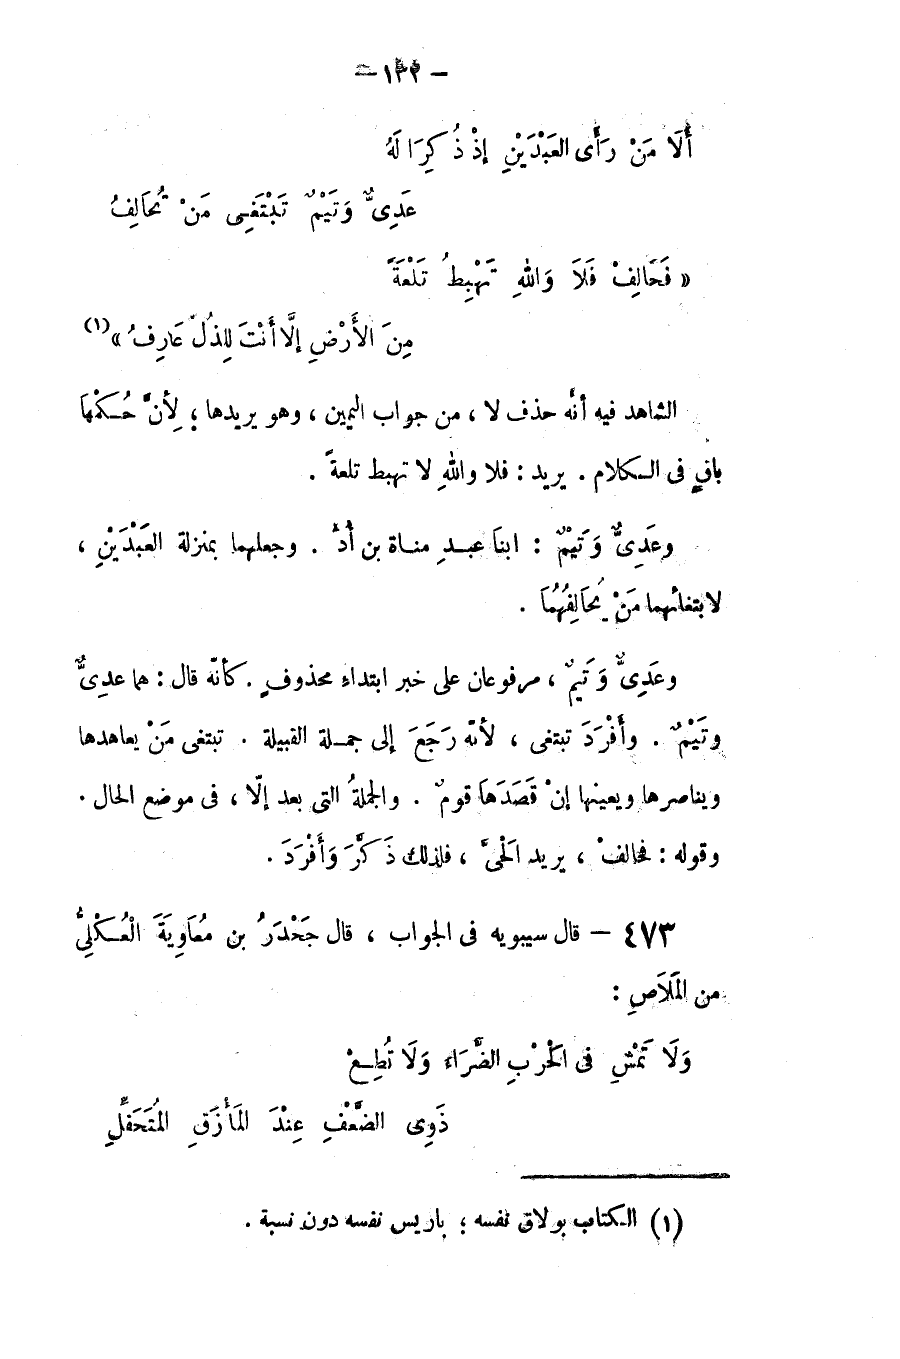 — ١٣٢ —
أَلَا مَنْ رَأَى العَبْدَيْنِ إِذْ ذُكِرَا لَهُ
عَدِىٌّ وَتَيْمٌ تَبْتَغِى مَنْ تُحَالِفُ
« فَحَالِفْ فَلَا وَاللهِ تَهْبِطُ تَلْعَةً
مِنَ الأَرْضِ إِلَّا أَنْتَ لِلذُلِّ عَارِفُ »(١)
الشاهد فيه أنَّه حذف لا ، من جواب اليمين ، وهو يريدها ؛ لِأنَّ حُكْمَهَا
باقٍ فى الكلام . يريد : فلا واللهِ لا تهبط تلعةً .
وعَدِىٌّ وَتَيْمٌ : ابنَا عبدِ مناة بن أُدّ . وجعلهما بمنزلة العَبْدَيْنِ ،
لابتغائهما مَنْ يُحَالِفُهُمَا .
وعَدِىٌّ وَتَيمٌ ، مرفوعان على خبر ابتداءٍ محذوفٍ . كأنّه قال : هما عدىٌّ
وتَيْمٌ . وأَفْرَدَ تبتغى ، لأنّه رَجَعَ إلى جملة القبيلة . تبتغى مَنْ يعاهدها
ويناصرها ويعينها إنْ قَصَدَهَا قومٌ . والجملةُ التى بعد إلّا ، فى موضع الحال .
وقوله : فحالفْ ، يريد الحَىَّ ، فلذلك ذَكَّرَ وَأَفْرَدَ .
٤٧٣ — قال سيبويه فى الجواب ، قال جَحْدَرُ بن مُعَاوِيَةَ الْعُكْلِىُّ
من المَلَاصِ :
وَلَا تَمْشِ فى الحَرْبِ الضَّرَاءَ وَلَا تُطِعْ
ذَوِى الضَّعْفِ عِنْدَ المَأْزَقِ المُتَحَفِّلِ
(١) الكتاب بولاق نفسه ؛ باريس نفسه دون نسبة .